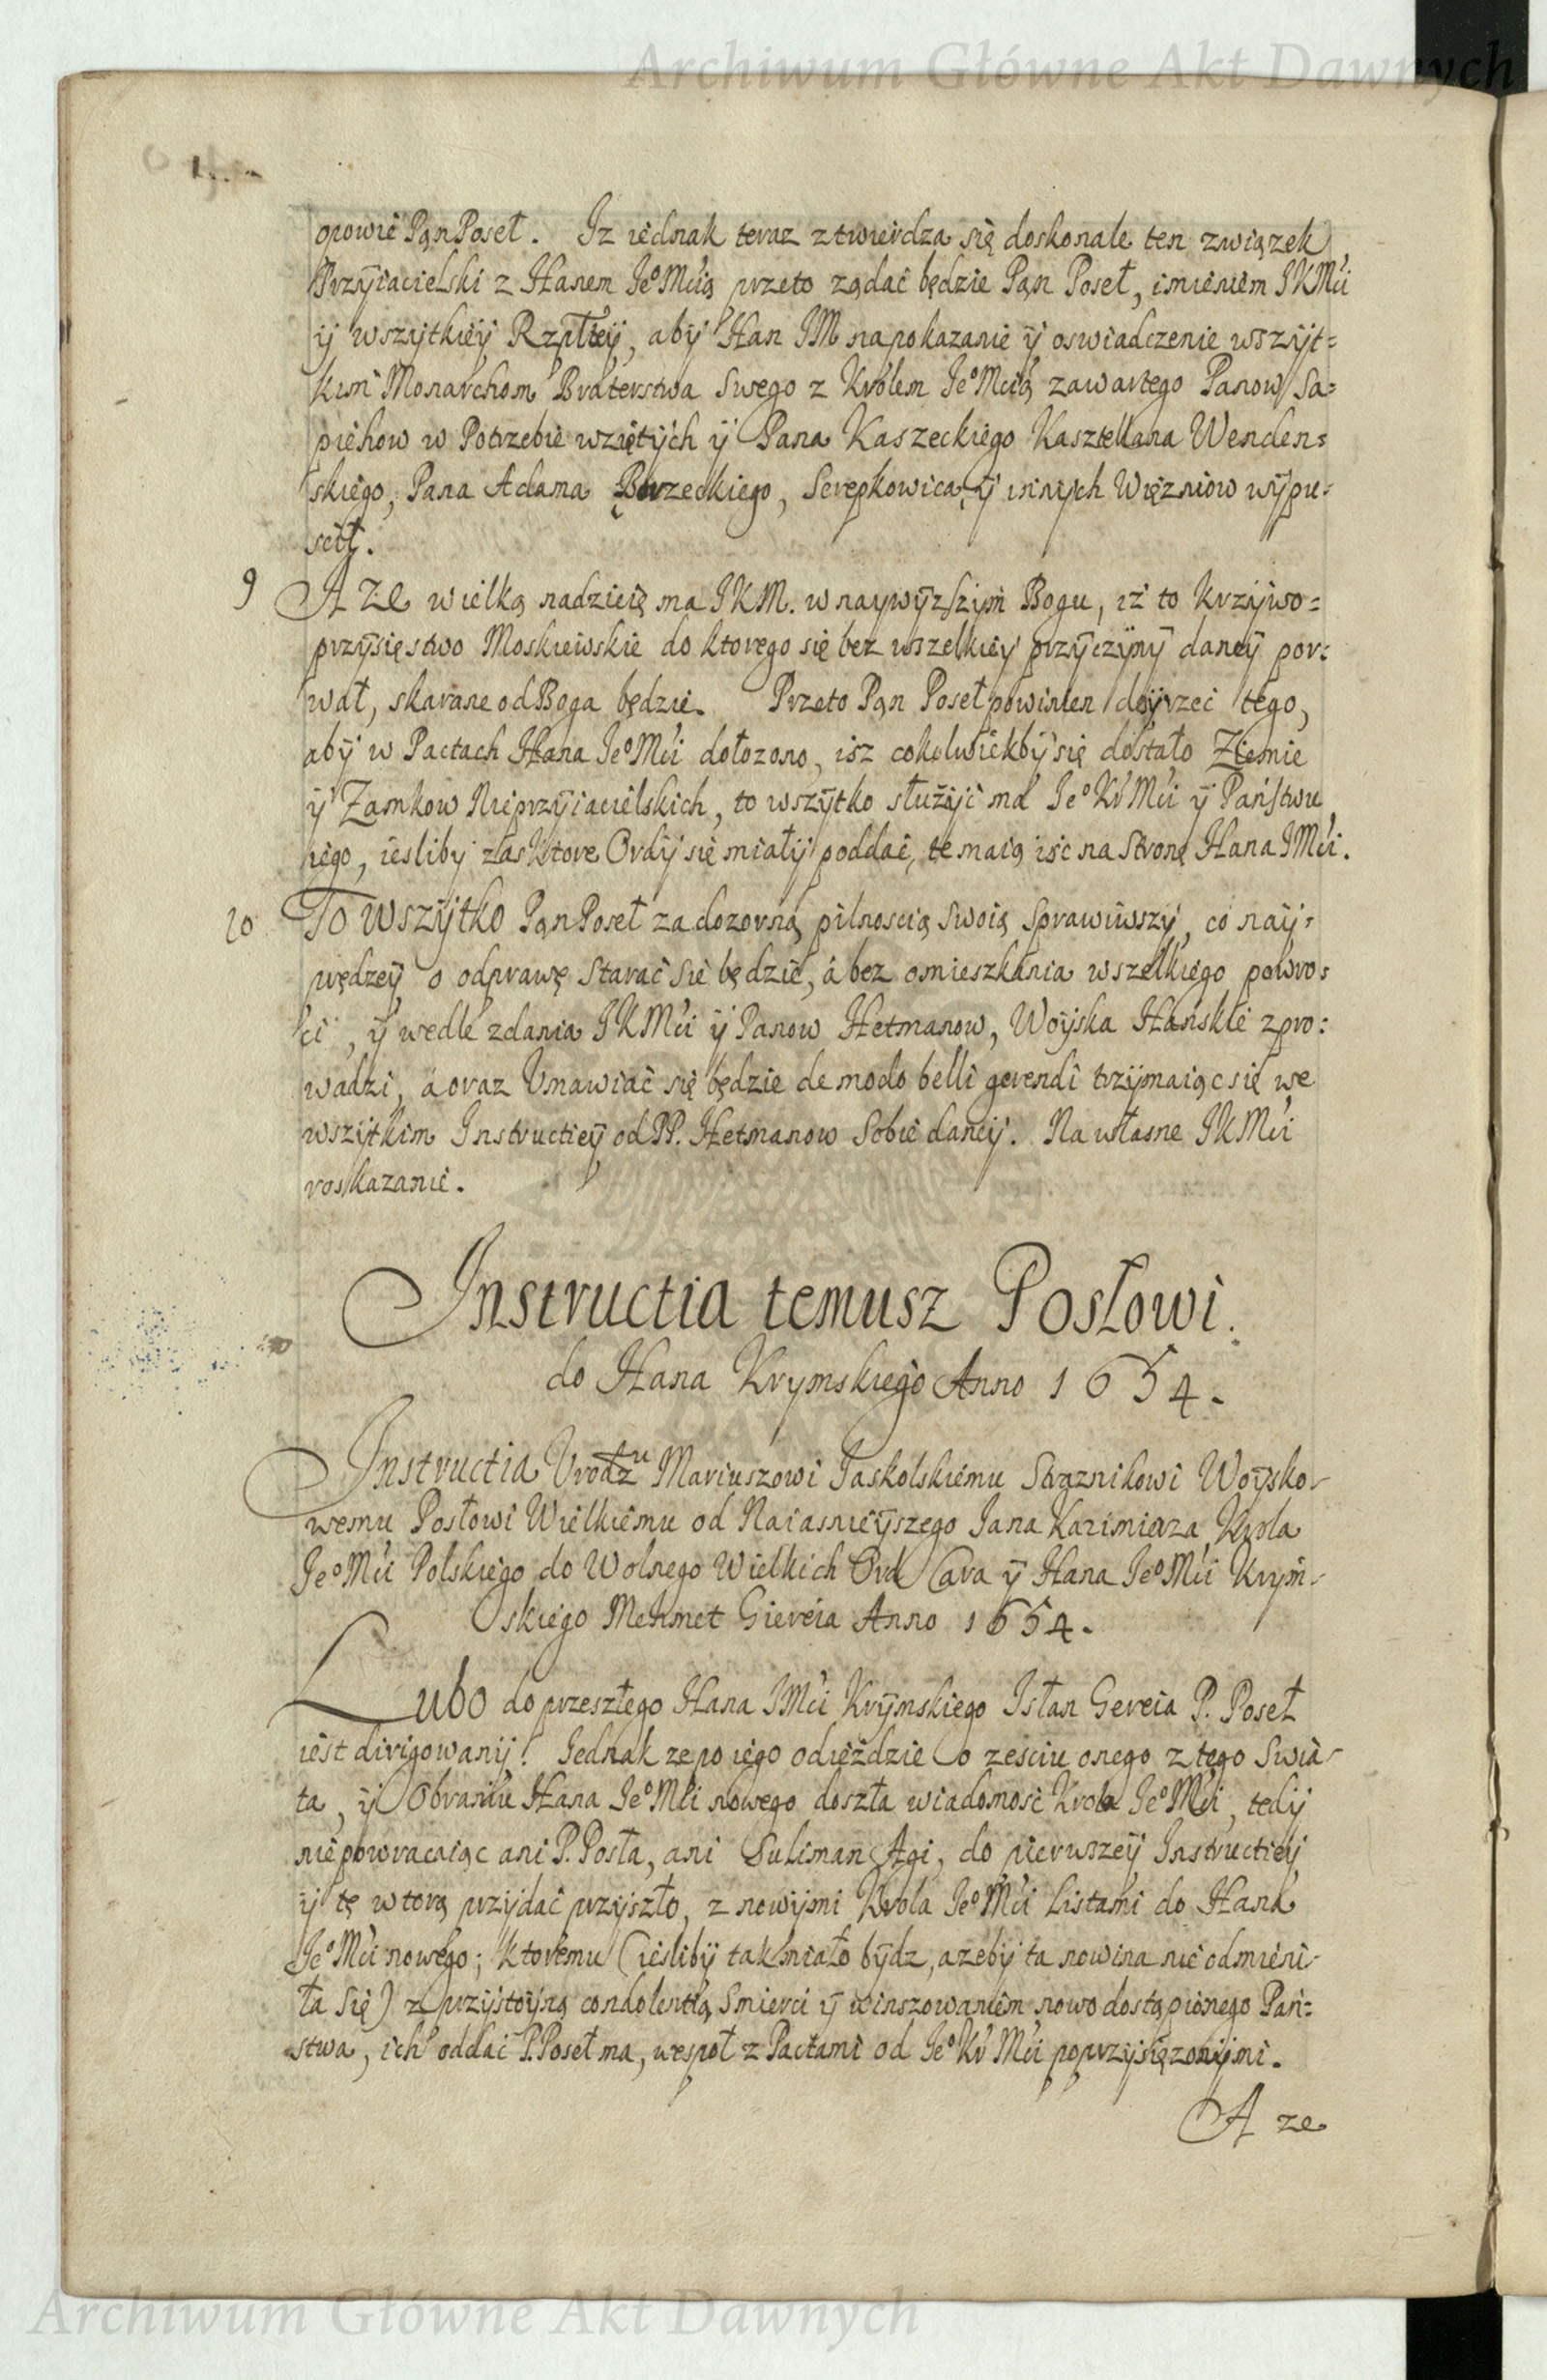 Archiwum Główne Akt Dawnych
opowie Pąn Poseł. Iz iednak teraz ztwierdza się doskonale ten związek
Przyiacielski z Hanem Jeº Mcią przeto ządać będzie Pąn Poseł, imieniem JKMci
ÿ wszÿtkieÿ Rzpltey, abÿ Han JM na pokazanie ÿ oswiadczenie wszÿt=
kim Monarchom Braterstwa Swego z Krolem Jeº Mcią zawartego Panow Sa=
piehow w Potrzebie wziętÿch ÿ Pana Kaszeckiego Kasztellana Wenden=
skiego, Pana Adama Borzeckiego, Serepkowica, ÿ innÿch Więzniow wÿpu=
scił.
9 A ze wielką nadzieię ma JKM. w naywÿzszÿm Bogu, iz to krzÿwo=
przÿsięstwo Moskiewskie do ktorego się bez wszelkieÿ przÿczÿnÿ daneÿ por=
wał, skarane od Boga będzie. Przeto Pąn Poseł powinien doÿrzec tego,
abÿ w Pactach Hana Jeº Mci dołozono, isz cokolwiekbÿ się dostało Ziemie
ÿ Zamkow Nieprzÿiacielskich, to wszÿtko słuzÿc ma Jeº Kr Mci ÿ Państwu
iego, iesliby zas ktore Ordÿ się miałÿ poddać, te maią iść na Stronę Hana JMci.
10 To wszÿtko Pąn Poseł za dozorną pilnoscią swoią sprawiwszÿ, co naÿ=
prędzeÿ o odprawę starać sie będzie, á bez omieszkania wszelkiego powro=
ci, ÿ wedle zdania JKMci ÿ Panow Hetmanow, Woÿska Hanskie zpro=
wadzi, á oraz Umawiać się będzie de modo belli gerendi trzÿmaiąc się we
wszÿtkim Instructieÿ od PP. Hetmanow Sobie daneÿ. Na własne JKMci
roskazanie.
Instructia temusz Posłowi.
do Hana Krymskiego Anno 1654.
Instructia Urodzu Mariuszowi Jaskolskiemu Straznikowi Woÿsko-
wemu Posłowi Wielkiemu od Naiasnieÿszego Jana Kazimierza Krola
Jeº Mci Polskiego do Wolnego Wielkich Ord Cara ÿ Hana Jeº Mci Krÿm-
skiego Mehmet Giereia Anno 1654.
Lubo do przeszłego Hana JMci Krÿmskiego Isłan Gereia P. Poseł
iest dirigowanÿ! Jednak ze po iego odieździe o zesciu onego z tego Swia-
ta, ÿ Obraniu Hana Jeº Mci nowego doszła wiadomosć Krola Jeº Mci, tedÿ
nie powracaiąc ani P. Posła, ani Suliman Agi, do pierwszeÿ Instructieÿ
ÿ tę wtorą przÿdać przÿszło, z nowÿmi Krola Jeº Mci Listami do Hana
Jeº Mci nowego; ktoremu (iesliby tak miało bÿdz, azebÿ ta nowina nie odmieni-
ła się) z przÿstoÿną condolentią Smierci ÿ winszowaniem nowo dostąpionego Pań=
stwa, ich oddać P. Poseł ma, wespoł z Pactami od Jeº Kr Mci poprzÿsięzonÿmi.
A ze
Archiwum Główne Akt Dawnych